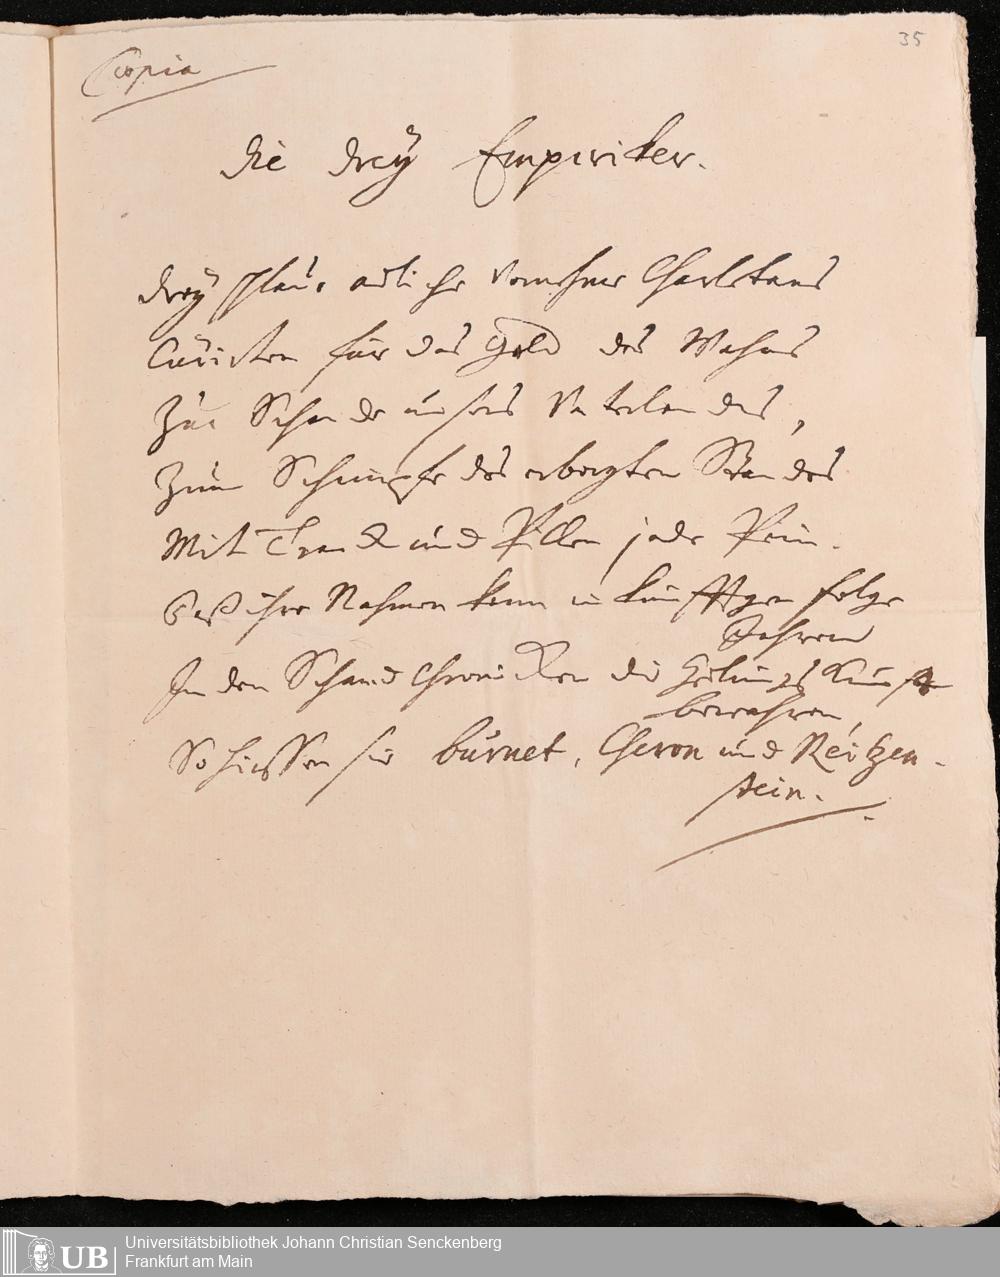 35
Copia
Die drey Empiriker.
Drey schlaue adliche vornehme Charletans
Curirten für das Geld des Wahns
Zur Schande unsers Vaterlandes,
Zum Schimpfe des erborgten Standes
Mit Tranck und Pillen jede Pein.
Daß ihre Nahmen kann in künfftgen Folge
Jahren
In den Schand Chronicken die Heilungs Kunst
bewahren,
So hiessen sie Burnet, Cheron und Reitzen-
stein.
UB
Universitätsbibliothek Johann Christian Senckenberg
Frankfurt am Main